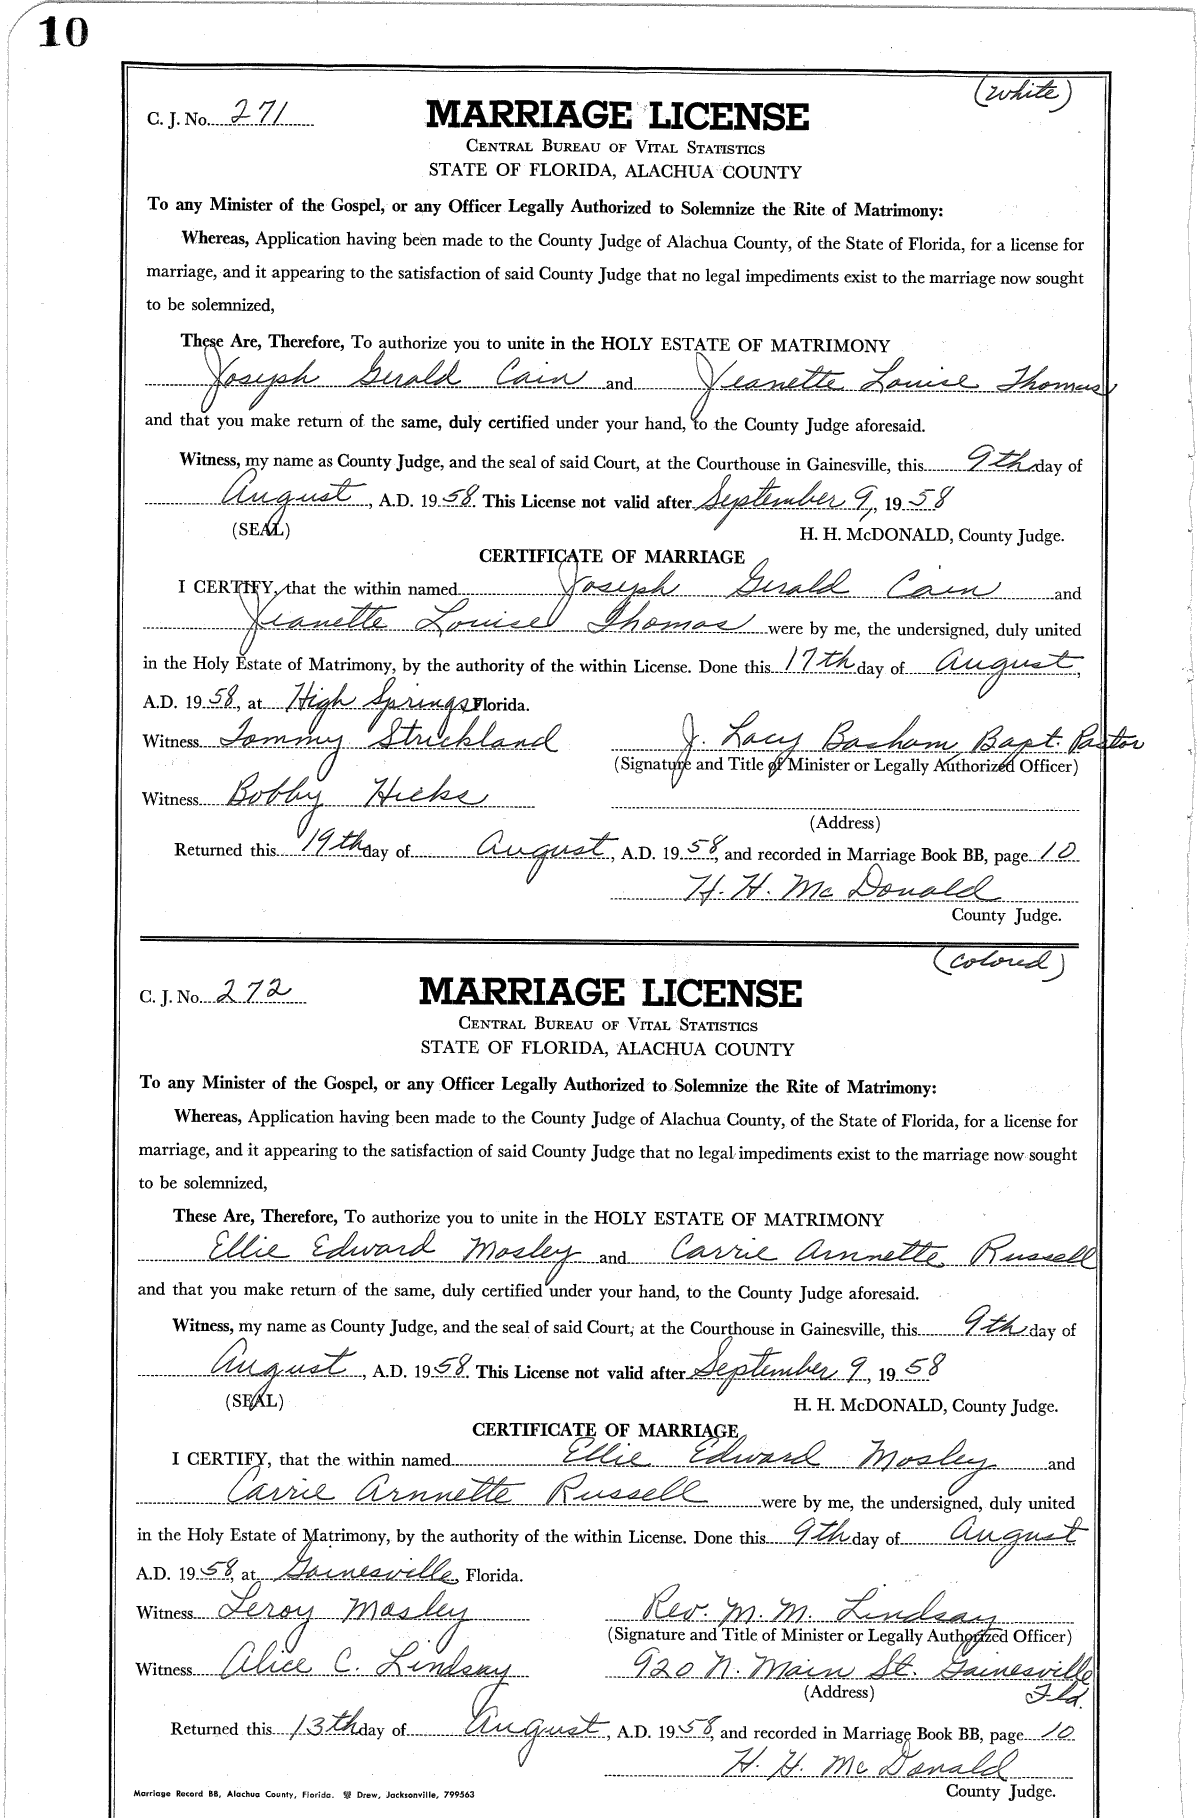 10
(white)
C. J. No. 271
MARRIAGE LICENSE
CENTRAL BUREAU OF VITAL STATISTICS
STATE OF FLORIDA, ALACHUA COUNTY
To any Minister of the Gospel, or any Officer Legally Authorized to Solemnize the Rite of Matrimony:
Whereas, Application having been made to the County Judge of Alachua County, of the State of Florida, for a license for
marriage, and it appearing to the satisfaction of said County Judge that no legal impediments exist to the marriage now sought
to be solemnized,
These Are, Therefore, To authorize you to unite in the HOLY ESTATE OF MATRIMONY
Joseph Gerald Cain and Jeanette Louise Thomas
and that you make return of the same, duly certified under your hand, to the County Judge aforesaid.
Witness, my name as County Judge, and the seal of said Court, at the Courthouse in Gainesville, this 9th day of
August, A.D. 1958. This License not valid after September 9, 1958
(SEAL) H. H. McDONALD, County Judge.
CERTIFICATE OF MARRIAGE
I CERTIFY, that the within named Joseph Gerald Cain and
Jeanette Louise Thomas were by me, the undersigned, duly united
in the Holy Estate of Matrimony, by the authority of the within License. Done this 17th day of August,
A.D. 1958, at High Springs, Florida.
Witness Tommy Strickland J. Lacy Basham, Bapt. Pastor
(Signature and Title of Minister or Legally Authorized Officer)
Witness Bobby Hicks
(Address)
Returned this 19th day of August, A.D. 1958, and recorded in Marriage Book BB, page 10
H. H. McDonald
County Judge.
(colored)
C. J. No. 272
MARRIAGE LICENSE
CENTRAL BUREAU OF VITAL STATISTICS
STATE OF FLORIDA, ALACHUA COUNTY
To any Minister of the Gospel, or any Officer Legally Authorized to Solemnize the Rite of Matrimony:
Whereas, Application having been made to the County Judge of Alachua County, of the State of Florida, for a license for
marriage, and it appearing to the satisfaction of said County Judge that no legal impediments exist to the marriage now sought
to be solemnized,
These Are, Therefore, To authorize you to unite in the HOLY ESTATE OF MATRIMONY
Ellie Edward Mosley and Carrie Arnnette Russell
and that you make return of the same, duly certified under your hand, to the County Judge aforesaid.
Witness, my name as County Judge, and the seal of said Court, at the Courthouse in Gainesville, this 9th day of
August, A.D. 1958. This License not valid after September 9, 1958
(SEAL) H. H. McDONALD, County Judge.
CERTIFICATE OF MARRIAGE
I CERTIFY, that the within named Ellie Edward Mosley and
Carrie Arnnette Russell were by me, the undersigned, duly united
in the Holy Estate of Matrimony, by the authority of the within License. Done this 9th day of August
A.D. 1958, at Gainesville, Florida.
Witness Leroy Mosley Rev. M. M. Lindsay
(Signature and Title of Minister or Legally Authorized Officer)
Witness Alice C. Lindsay 920 N. Main St. Gainesville
(Address) Fla.
Returned this 13th day of August, A.D. 1958, and recorded in Marriage Book BB, page 10
H. H. McDonald
County Judge.
Marriage Record BB, Alachua County, Florida. Drew, Jacksonville, 799563